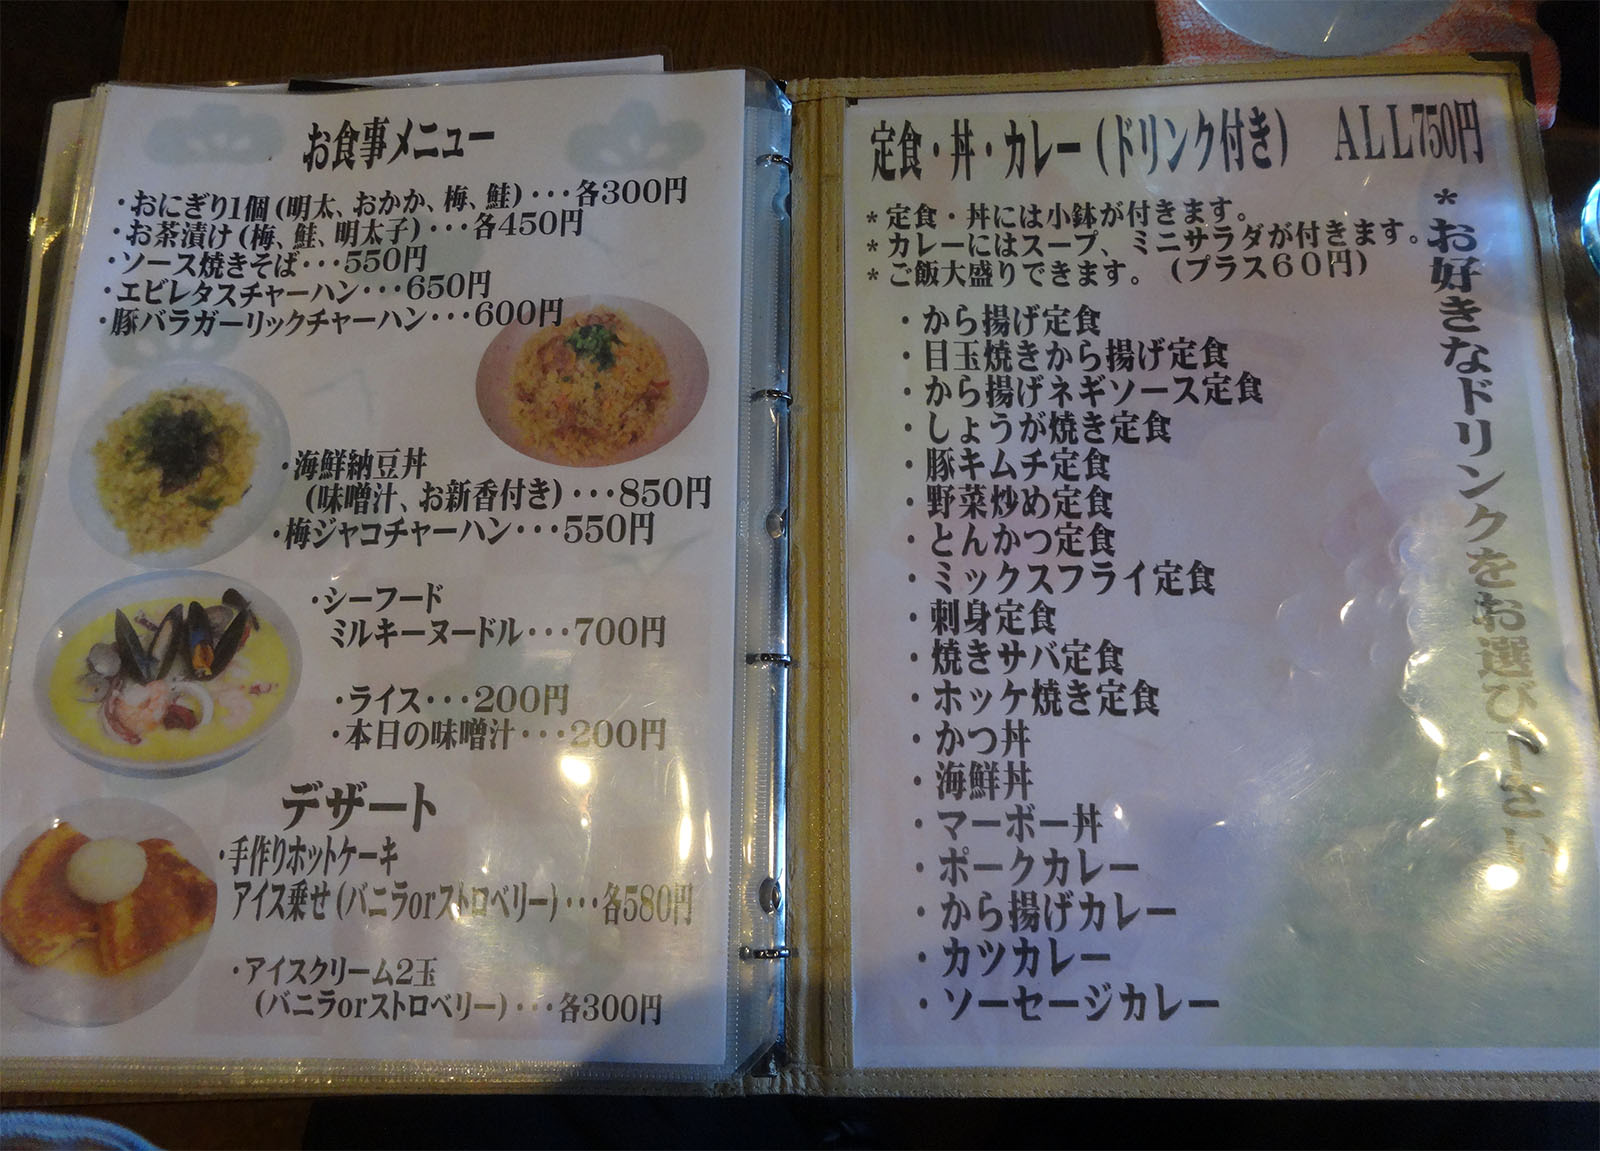 お食事メニュー
・おにぎり1個(明太、おかか、梅、鮭)・・・各300円
・お茶漬け(梅、鮭、明太子)・・・各450円
・ソース焼きそば・・・550円
・エビレタスチャーハン・・・650円
・豚バラガーリックチャーハン・・・600円
・海鮮納豆丼
(味噌汁、お新香付き)・・・850円
・梅ジャコチャーハン・・・550円
・シーフード
ミルキーヌードル・・・700円
・ライス・・・200円
・本日の味噌汁・・・200円
デザート
・手作りホットケーキ
アイス乗せ(バニラorストロベリー)・・・各580円
・アイスクリーム2玉
(バニラorストロベリー)・・・各300円
定食・丼・カレー(ドリンク付き) ALL750円
*定食・丼には小鉢が付きます。
*カレーにはスープ、ミニサラダが付きます。
*ご飯大盛りできます。(プラス60円)
・から揚げ定食
・目玉焼きから揚げ定食
・から揚げネギソース定食
・しょうが焼き定食
・豚キムチ定食
・野菜炒め定食
・とんかつ定食
・ミックスフライ定食
・刺身定食
・焼きサバ定食
・ホッケ焼き定食
・かつ丼
・海鮮丼
・マーボー丼
・ポークカレー
・から揚げカレー
・カツカレー
・ソーセージカレー
*お好きなドリンクをお選び下さい